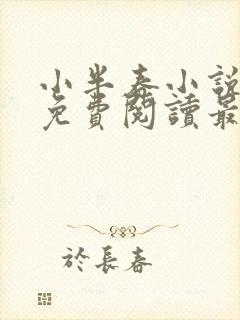 小半春小說
免費閱讀最
於長春